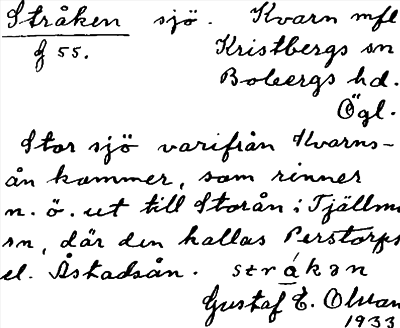 Stråken sjö. Kvarn mfl
g 55. Kristbergs sn
Bobergs hd.
Ögl.
Stor sjö varifrån Kvarns-
ån kommer, som rinner
n. ö. ut till Storån i Tjällmo
sn, där den kallas Perstorps
el. Åstadsån. stråkən
Gustaf E. Olsson
1933